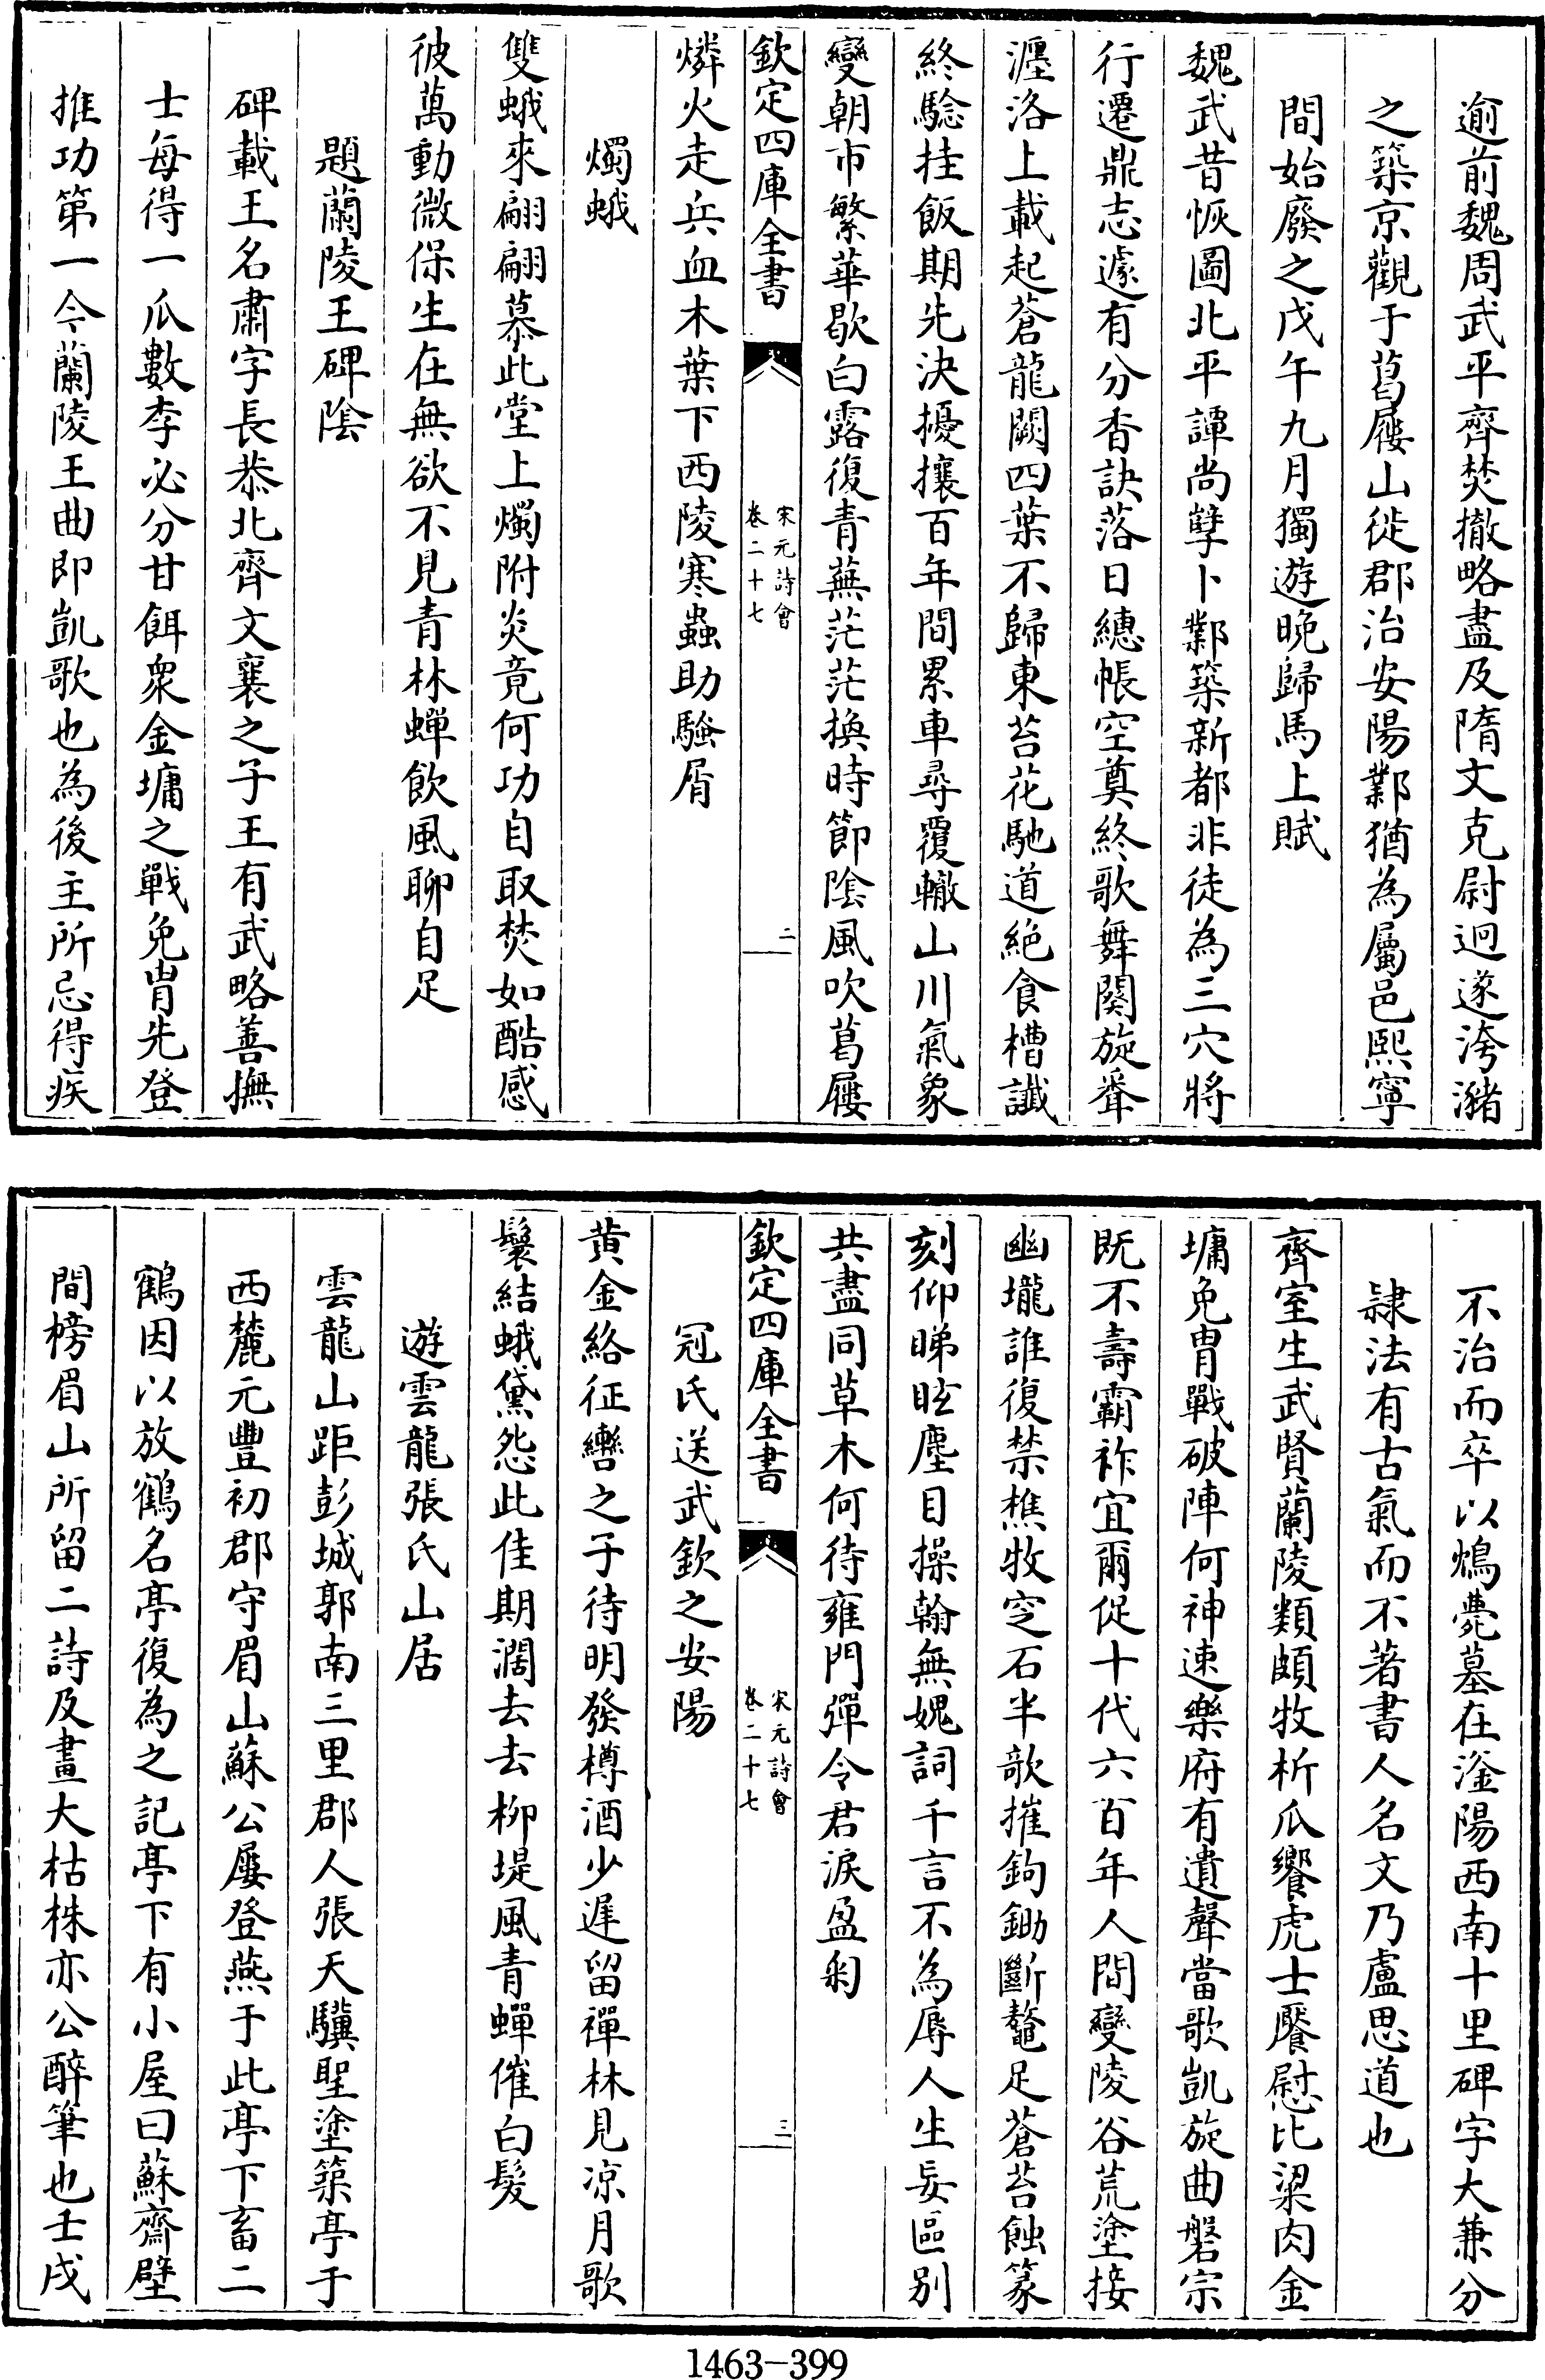 逾前魏周武平齊焚撤略盡及隋文克尉迥遂洿瀦
之築京觀于葛屨山徙郡治安陽鄴猶為屬邑熙寧
間始廢之戊午九月獨遊晚歸馬上賦
魏武昔恢圖北平譚尚孽卜鄴築新都非徒為三穴將
行遷鼎志遽有分香訣落日繐帳空奠終歌舞闋旋聳
瀍洛上載起蒼龍闕四葉不歸東苔花馳道絶食槽讖
終騐挂飯期先決擾攘百年間累車尋覆轍山川氣象
變朝市繁華歇白露復青蕪茫茫換時節陰風吹葛屨
欽定四庫全書
宋元詩會
卷二十七
二
燐火走兵血木葉下西陵寒蟲助騷屑
燭蛾
雙蛾來翩翩慕此堂上燭附炎竟何功自取焚如酷感
彼萬動微保生在無欲不見青林蟬飲風聊自足
題蘭陵王碑陰
碑載王名肅字長恭北齊文襄之子王有武略善撫
士每得一瓜數李必分甘餌衆金墉之戰免胄先登
推功第一今蘭陵王曲即凱歌也為後主所忌得疾
不治而卒以鴆薨墓在滏陽西南十里碑字大兼分
隸法有古氣而不著書人名文乃盧思道也
齊室生武賢蘭陵類頗牧析瓜饗虎士饜慰比粱肉金
墉免胄戰破陣何神速樂府有遺聲當歌凱旋曲磐宗
既不壽霸祚宜爾促十代六百年人間變陵谷荒塗接
幽壠誰復禁樵牧穹石半欹摧鉤鋤斷鼇足蒼苔蝕篆
刻仰睇眩塵目操翰無媿詞千言不為辱人生妄區别
共盡同草木何待雍門彈令君淚盈匊
欽定四庫全書
宋元詩會
卷二十七
三
冠氏送武欽之安陽
黄金絡征轡之子待明發樽酒少遲留禪林見凉月歌
鬟結蛾黛怨此佳期濶去去柳堤風青蟬催白髮
遊雲龍張氏山居
雲龍山距彭城郭南三里郡人張天驥聖塗築亭于
西麓元豐初郡守眉山蘇公屢登燕于此亭下畜二
鶴因以放鶴名亭復為之記亭下有小屋曰蘇齋壁
間榜眉山所留二詩及畫大枯株亦公醉筆也壬戌
1463-399